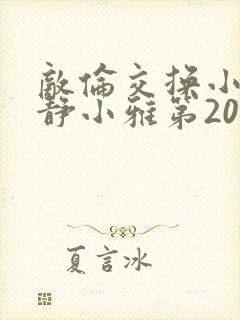 敵倫交换小
静小雅第20
夏言冰